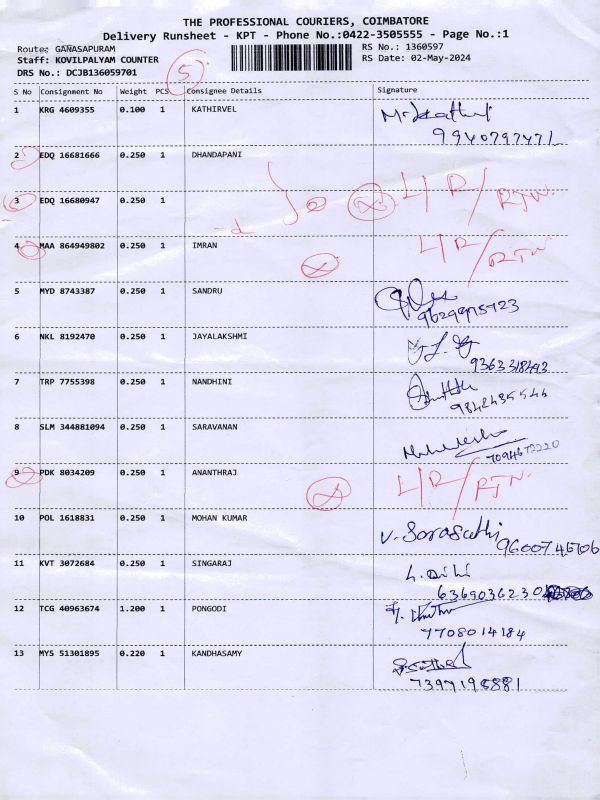 THE PROFESSIONAL COURIERS, COIMBATORE
Delivery Runsheet - KPT - Phone No.:0422-3505555 - Page No.:1
Route: GANASAPURAM
RS No.: 1360597
Staff: KOVILPALYAM COUNTER
RS Date: 02-May-2024
DRS No.: DCJB136059701
5
S No Consignment No Weight PCS Consignee Details Signature
1 KRG 4609355 0.100 1 KATHIRVEL
9940797471
2 EDQ 16681666 0.250 1 DHANDAPANI
3 EDQ 16680947 0.250 1 L/R/RTN.
4 MAA 864949802 0.250 1 IMRAN L/R/RTN
5 MYD 8743387 0.250 1 SANDRU
6 NKL 8192470 0.250 1 JAYALAKSHMI
9363318493
7 TRP 7755398 0.250 1 NANDHINI
9842435544
8 SLM 344881094 0.250 1 SARAVANAN
7094672220
9 PDK 8034209 0.250 1 ANANTHRAJ L/R/RTN.
10 POL 1618831 0.250 1 MOHAN KUMAR V. Sarasathi
11 KVT 3072684 0.250 1 SINGARAJ
6369036230
12 TCG 40963674 1.200 1 PONGODI
7708014184
13 MYS 51301895 0.220 1 KANDHASAMY
7397195881